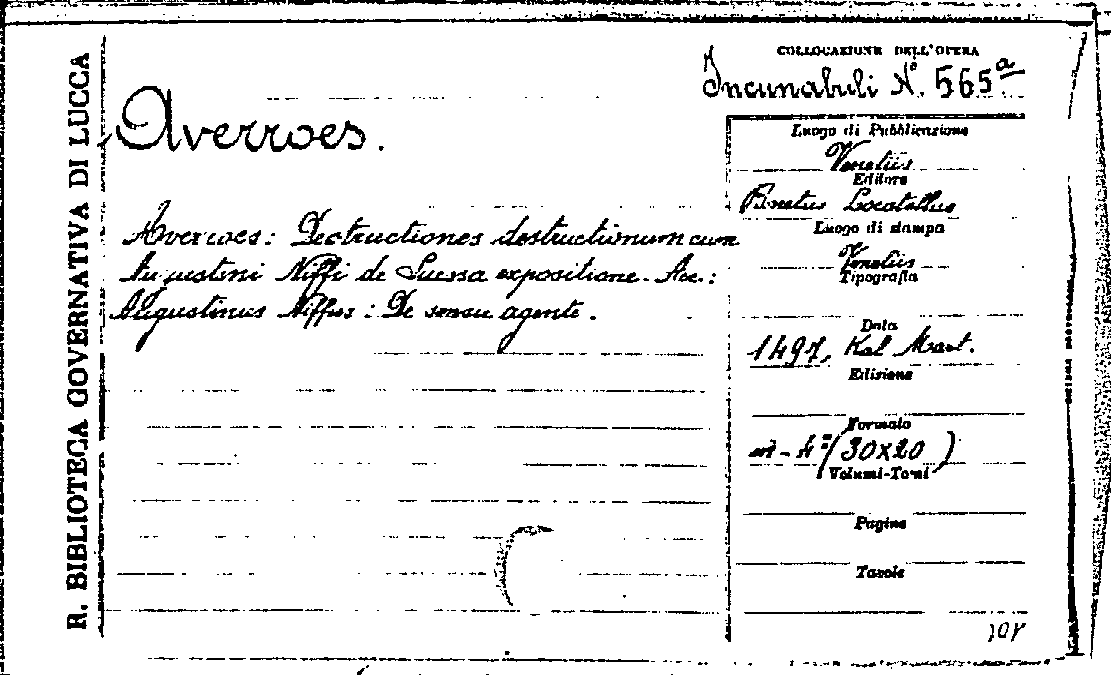 R. BIBLIOTECA GOVERNATIVA DI LUCCA
COLLOCAZIONE DELL'OPERA
Incunabuli N.° 565a
Averroes.
Averroes: Destructiones destructionum cum
Augustini Niffi de Suessa expositione. Acc.:
Augustinus Niffus: De sensu agente.
Luogo di Pubblicazione
Venetiis
Editore
Bonetus Locatellus
Luogo di stampa
Venetiis
Tipografia
Data
1497, Kal Mart.
Edizione
Formato
in-4° (30x20)
Volumi-Tomi
Pagine
Tavole